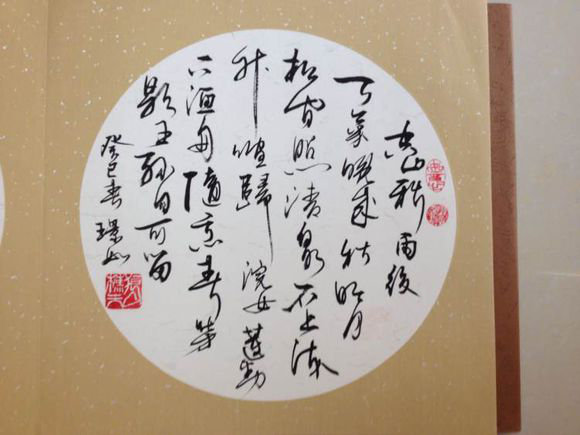 空山新雨後
天氣晚來秋明月
松間照清泉石上流
竹喧歸浣女蓮動
下漁舟隨意春芳
歇王孫自可留
癸巳春